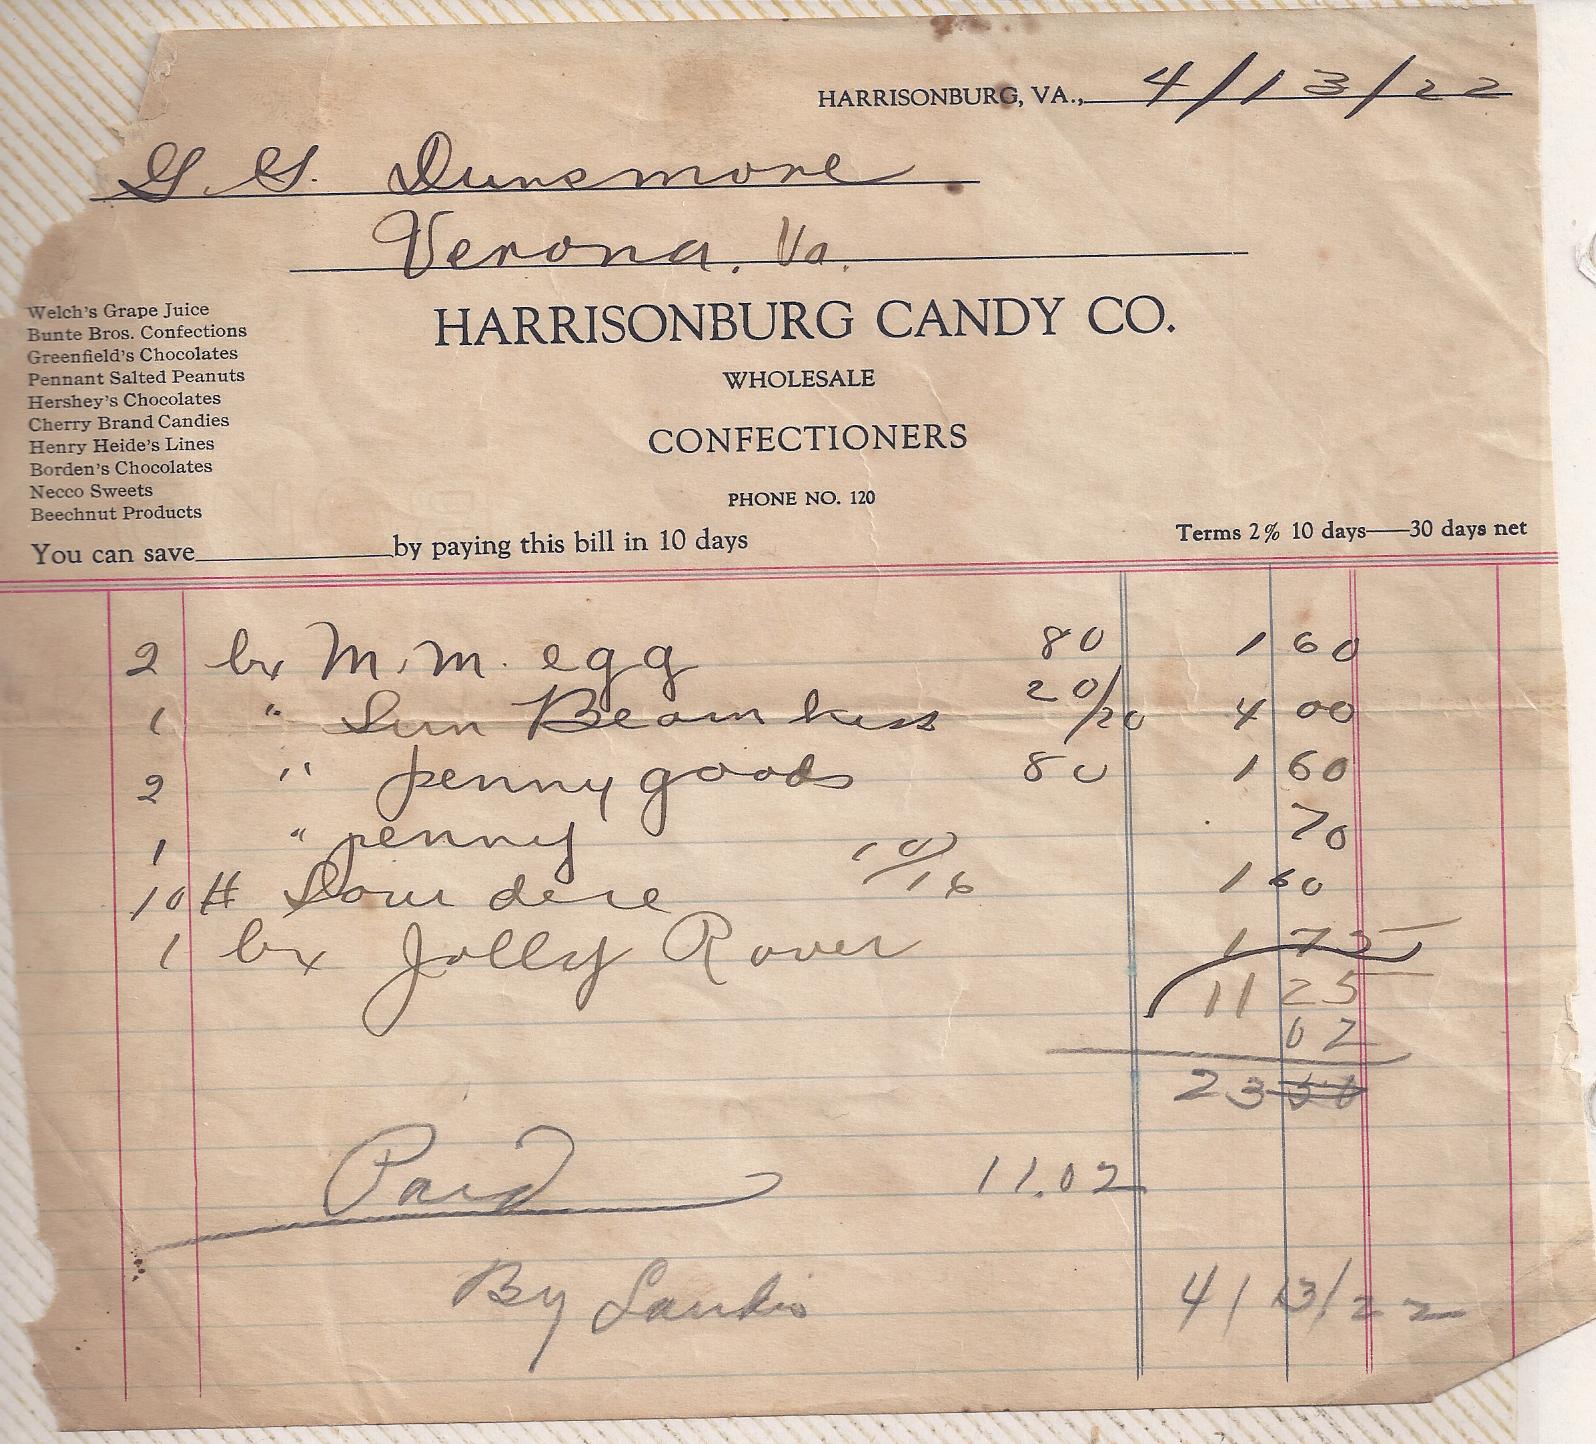 HARRISONBURG, VA., 4/13/22
G. G. Dunsmore
Verona, Va.
Welch's Grape Juice
Bunte Bros. Confections
Greenfield's Chocolates
Pennant Salted Peanuts
Hershey's Chocolates
Cherry Brand Candies
Henry Heide's Lines
Borden's Chocolates
Necco Sweets
Beechnut Products
HARRISONBURG CANDY CO.
WHOLESALE
CONFECTIONERS
PHONE NO. 120
You can save by paying this bill in 10 days
Terms 2% 10 days—30 days net
2 bx M. M. egg 80 1 60
1 " Sun Beam kiss 20/20 4 00
2 " penny goods 80 1 60
1 " penny 70
10 # Sour dere 10/16 1 60
1 bx Jolly Rover 1 75
11 25
02
23
Paid 11.02
By Landis 4/13/22